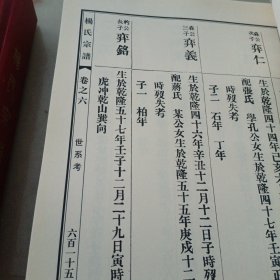 弈仁
生於乾隆四十四年己亥
配張氏 學孔公女生於乾隆四十七年壬寅
時歿失考
子二 石年 丁年
三子 弈義
生於乾隆四十六年辛丑十二月十二日子時歿
配蔣氏 某公女生於乾隆五十五年庚戌十二
時歿失考
子一 柏年
長子 弈銘
生於乾隆五十七年壬子十二月二十九日寅時
虎冲乾山巽向
楊氏宗譜
卷之六
世系考
六百一十五